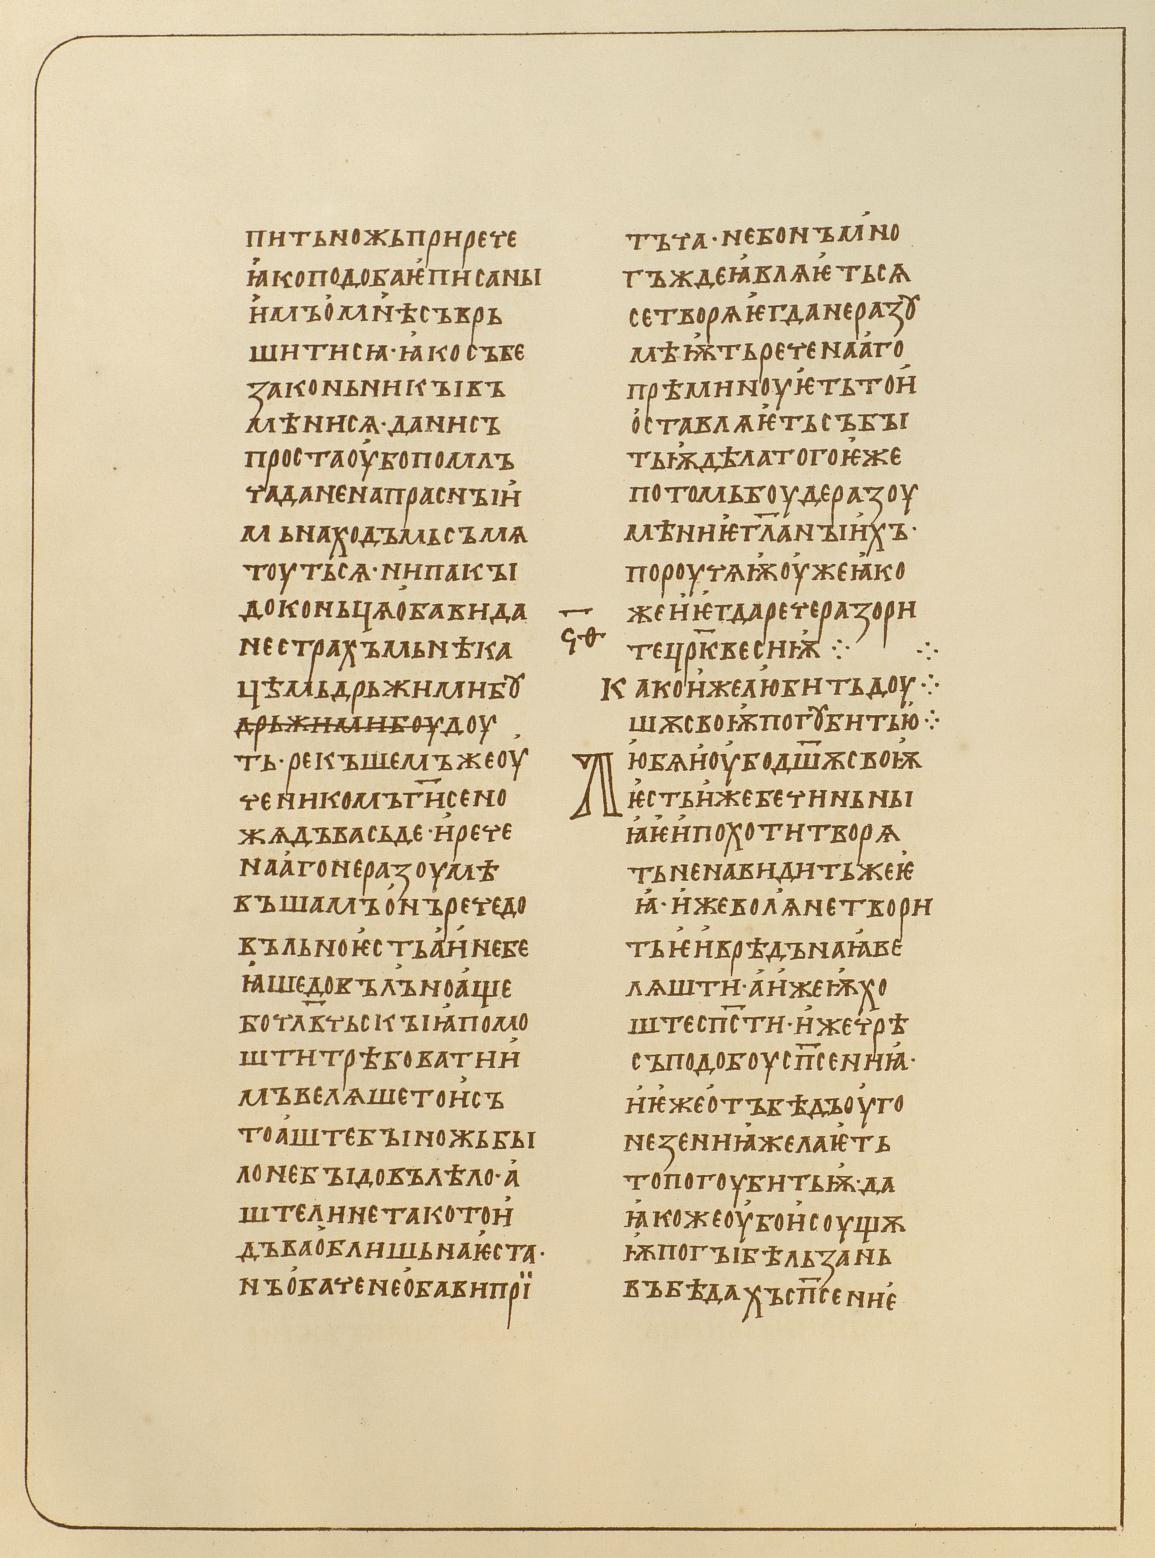 питьножьприрече
ꙗкоподобаѥписаны
имъомнѣсъврь
шитисѩ·ꙗкосъбе
законьникъівъ
мѣнисѧ·данисъ
простаоубополмлъ
чаданенапраснъіи
мьнаходъмьсъмѧ
тоутьсѧ·нипакъі
доконьцѧобавида
нестрахъмьнѣка
цѣмьдрьжимиꙋ
дрьжимибоудоу
ть·рекъшемъжеоу
ченикомъг҃исено
жѧдъвасьде·ирече
наагонеразоумѣ
въшамъонъречедо
въльноѥстьаинебе
ꙗшедовълъноаще
бочл҃вчьскъіꙗпомо
штитрѣбоватии
мъвелѧшетоисъ
тоаштебъіножьбы
лонебъідовълѣло·а
штелинетакотои
дъваоблишьнаѥста·
нъобаченеобавипрї
тъча·небонъмно
гъждеꙗвлѧѥтьсѧ
сетворѧѥгданеразꙋ
мѣѭтьреченааго
прѣминоуѥтьтои
оставлѧѥтьсъбъі
тьѭдѣлатогоѥже
потомьбоудеразоу
мѣниѥгл҃анъіихъ·
пороучѧѭоужеꙗко
жеиѥгдаречеразори
тецр҃квесиѭ ⁘ ⁘
с҃ѳ
какоижелюбитьдоу⁘
шѫсвоѭпогꙋбитью⁘
Люблѧиоубод҃шѫсвоѭ
ѥстьижебечиньны
ꙗѥипохотитворѧ
тьненавидитьжеѥ
ꙗ·ижеволѧнетвори
тьѥиврѣдънаꙗве
лѧшти·аижеѭхо
штесп҃сти·ижечрѣ
съподобоусп҃сениꙗ·
иѥжеотъбѣдъоуго
незениꙗжелаѥть
топогоубитьѭ·да
ꙗкожеоубоисоущѫ
ѭпогъібѣльзань
въбѣдахъсп҃сение